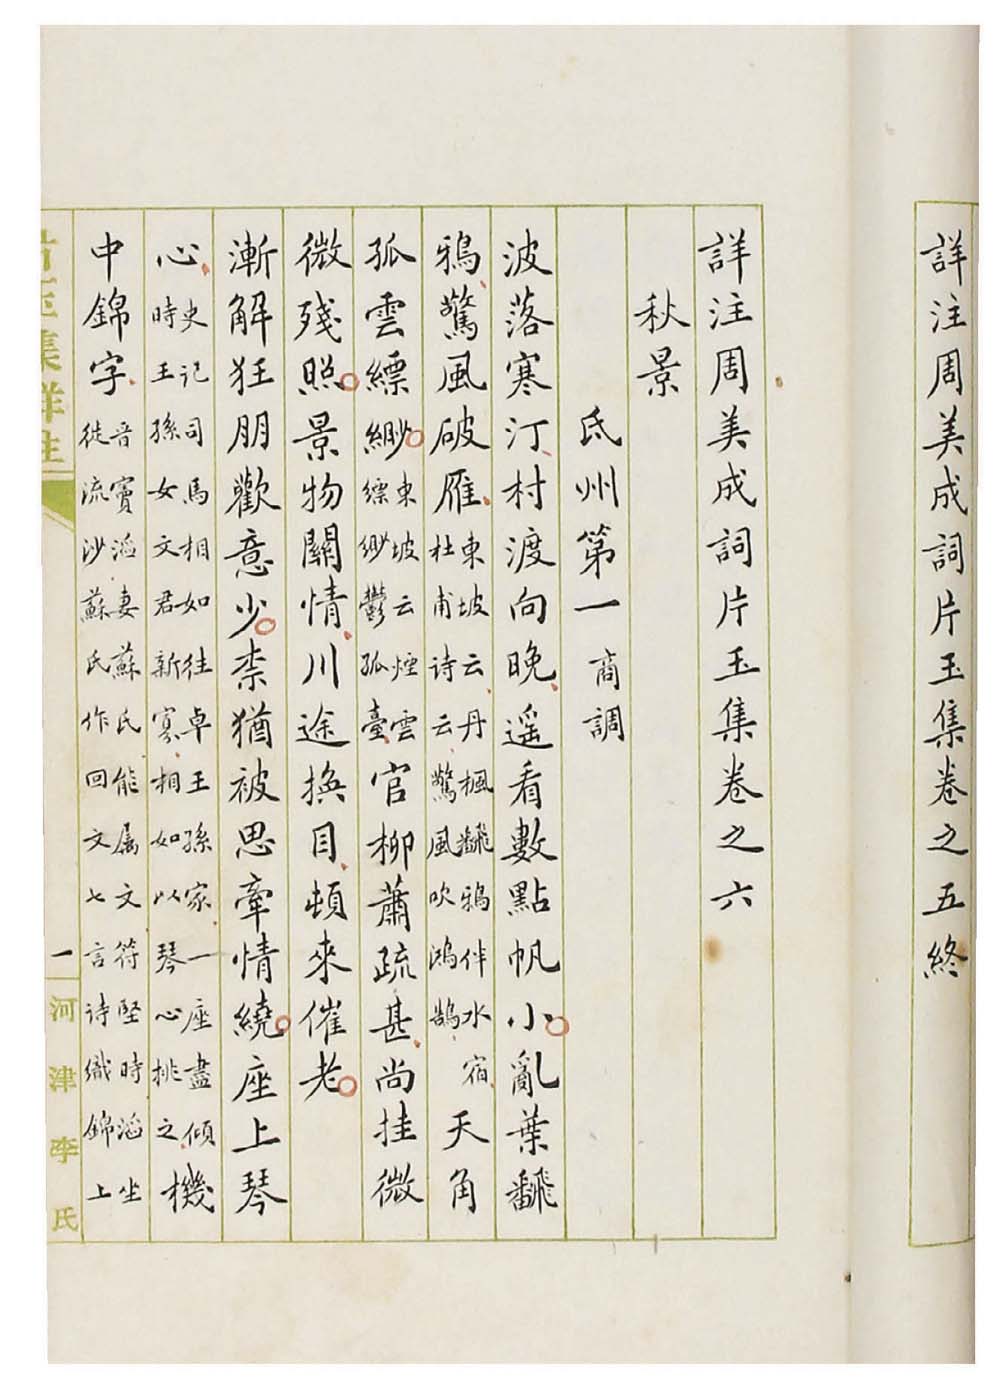 詳注周美成詞片玉集卷之五終
詳注周美成詞片玉集卷之六
秋景
氐州第一 商調
波落寒汀村渡向晚遥看數點帆小亂葉飜
鴉驚風破雁 東坡云丹楓飜鴉伴水宿 杜甫诗云驚風吹鴻鵠 天角
孤雲縹緲 東坡云煙雲 縹緲鬱孤臺 官柳蕭疏甚尚挂微
微殘照景物關情川途換目頓來催老
漸解狂朋歡意少柰猶被思牽情繞座上琴
心 史记司馬相如往卓王孫家一座盡傾 時王孫女文君新寡相如以琴心挑之 機
中錦字 音竇滔妻蘇氏能属文符堅時滔坐 徙流沙蘇氏作回文七言诗織錦上
片玉集詳注
一
河津李氏